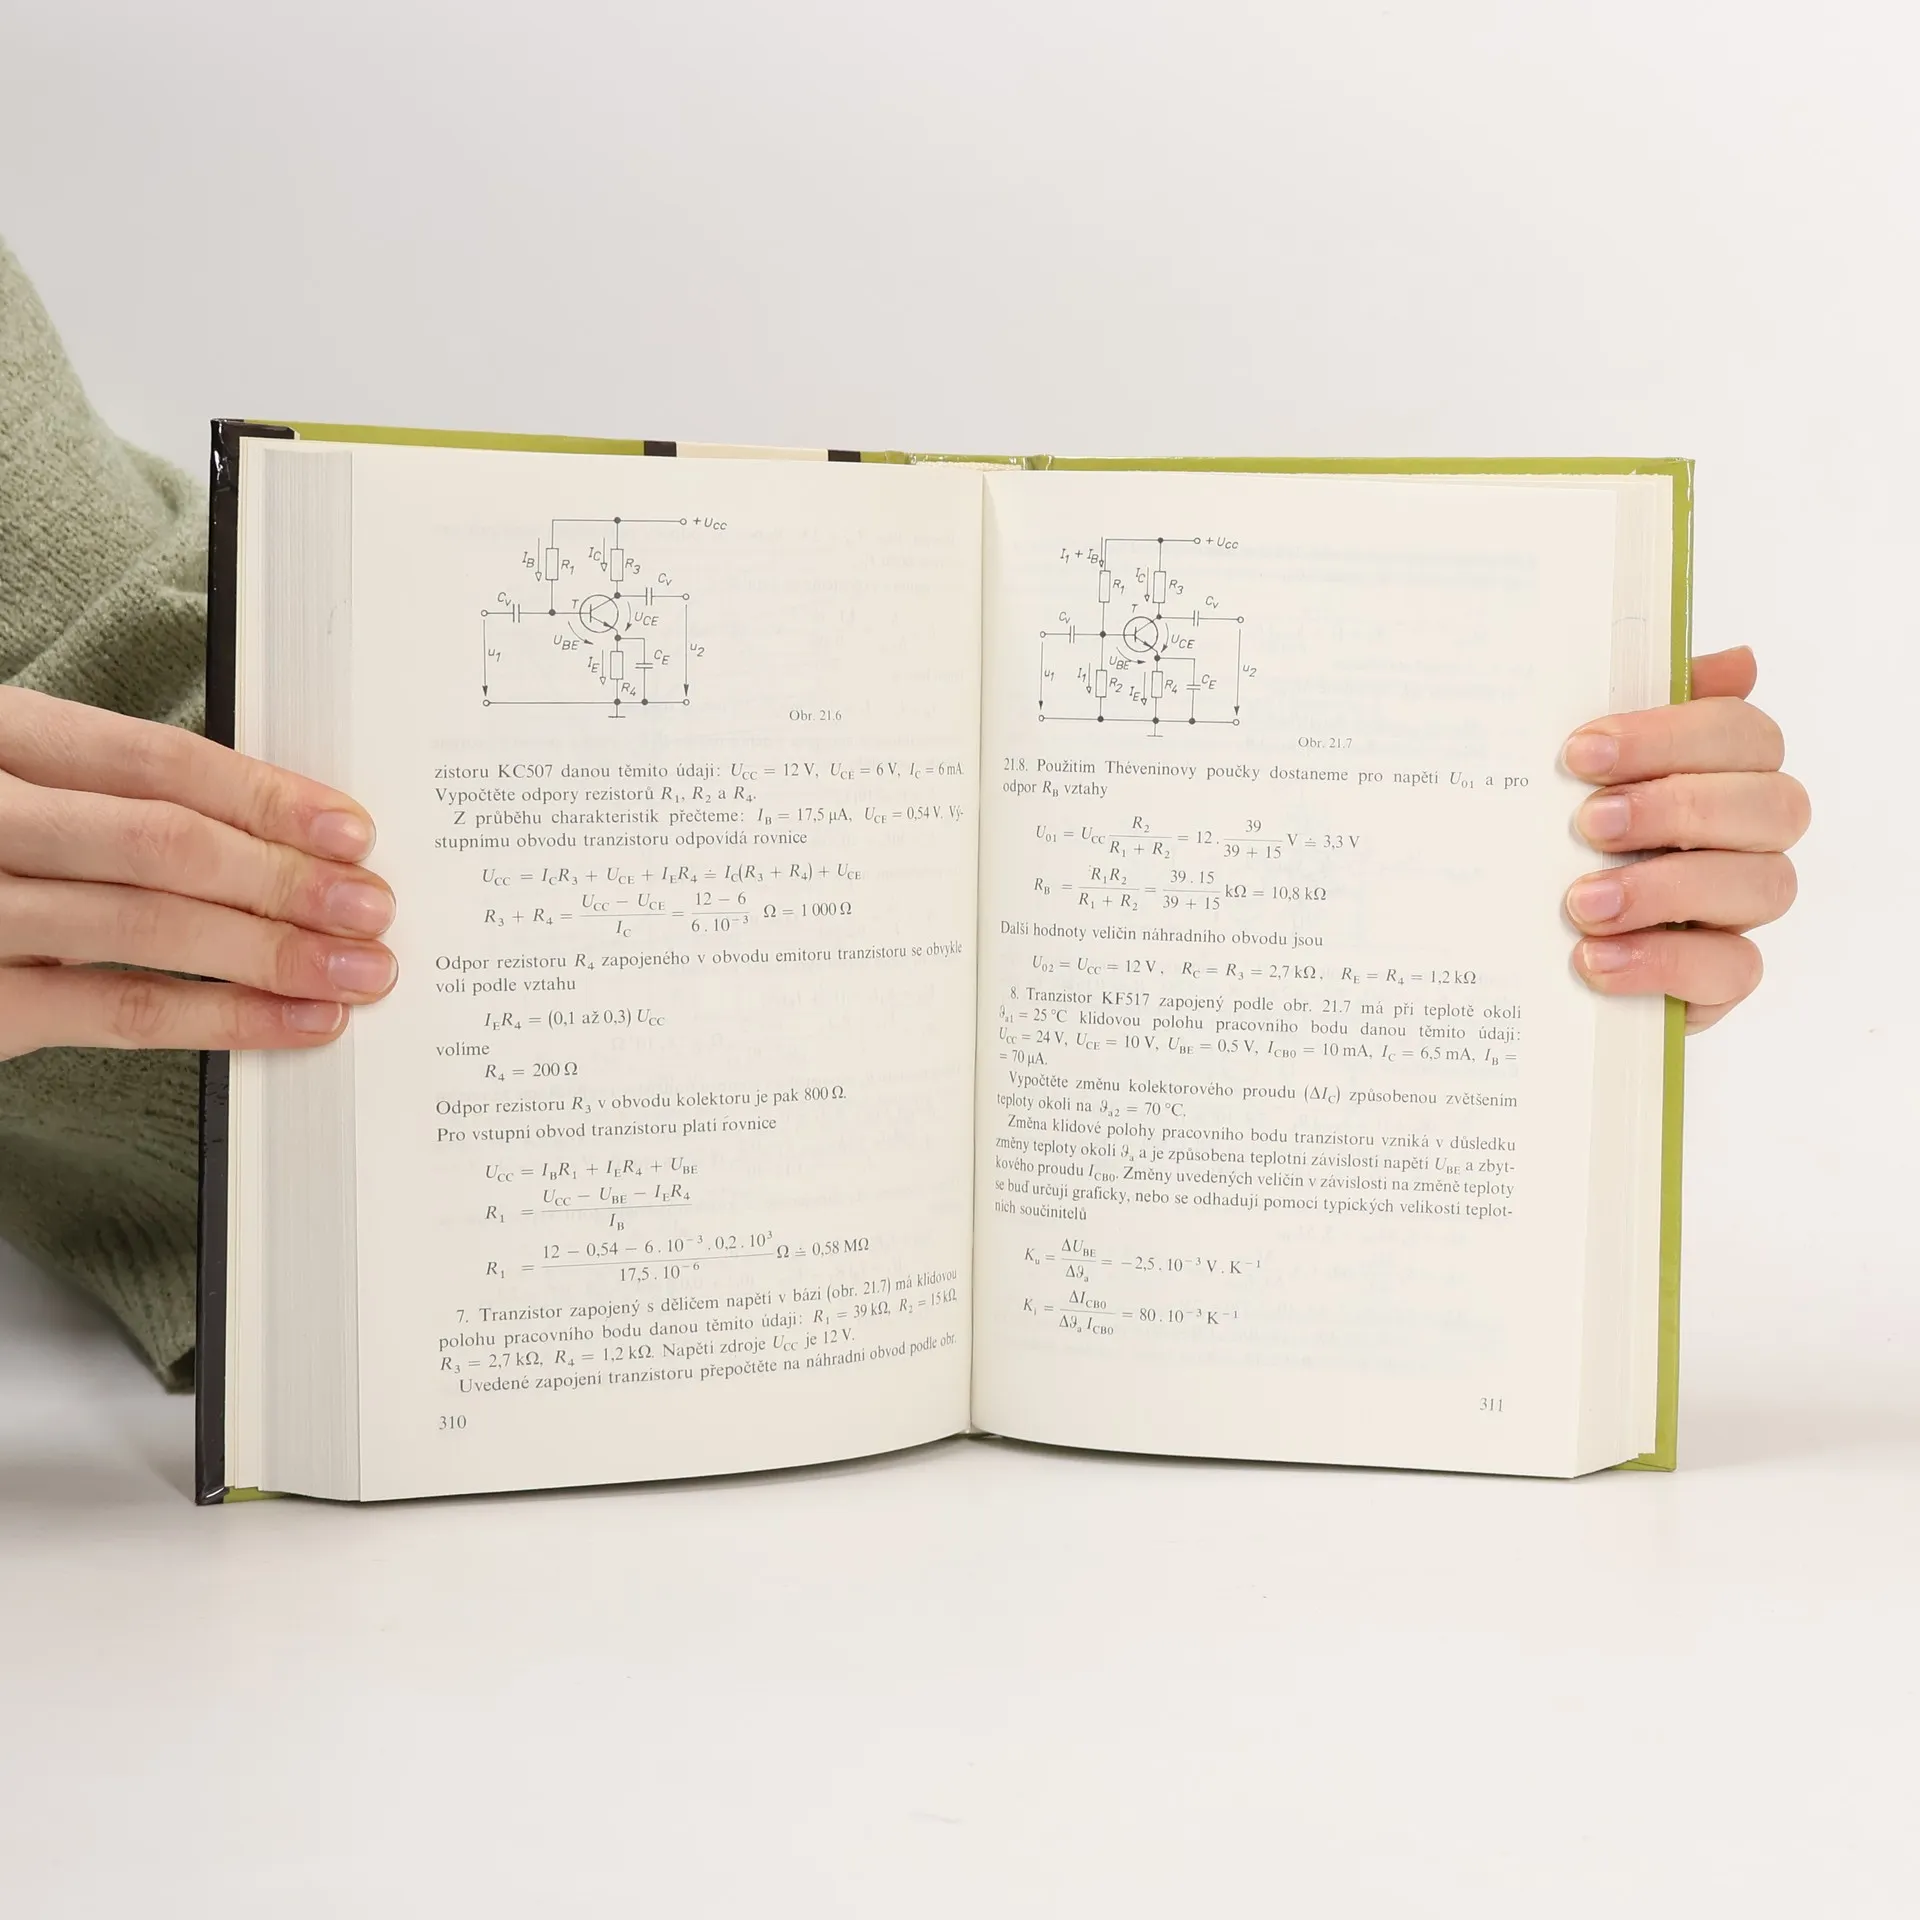 + U_CC
I_B R_1 I_C R_3
C_v T C_v
U_CE
U_BE
u_1 I_E C_E u_2
R_4
Obr. 21.6
zistoru KC507 danou těmito údaji: U_CC = 12 V, U_CE = 6 V, I_C = 6 mA.
Vypočtěte odpory rezistorů R_1, R_2 a R_4.
Z průběhu charakteristik přečteme: I_B = 17,5 µA, U_CE = 0,54 V. Vý-
stupnímu obvodu tranzistoru odpovídá rovnice
U_CC = I_C R_3 + U_CE + I_E R_4 ≐ I_C(R_3 + R_4) + U_CE
R_3 + R_4 = (U_CC − U_CE) / I_C = (12 − 6) / (6 . 10^−3) Ω = 1 000 Ω
Odpor rezistoru R_4 zapojeného v obvodu emitoru tranzistoru se obvykle
volí podle vztahu
I_E R_4 = (0,1 až 0,3) U_CC
volíme
R_4 = 200 Ω
Odpor rezistoru R_3 v obvodu kolektoru je pak 800 Ω.
Pro vstupní obvod tranzistoru platí rovnice
U_CC = I_B R_1 + I_E R_4 + U_BE
R_1 = (U_CC − U_BE − I_E R_4) / I_B
R_1 = (12 − 0,54 − 6 . 10^−3 . 0,2 . 10^3) / (17,5 . 10^−6) Ω ≐ 0,58 MΩ
7. Tranzistor zapojený s děličem napětí v bázi (obr. 21.7) má klidovou
polohu pracovního bodu danou těmito údaji: R_1 = 39 kΩ, R_2 = 15 kΩ,
R_3 = 2,7 kΩ, R_4 = 1,2 kΩ. Napětí zdroje U_CC je 12 V.
Uvedené zapojení tranzistoru přepočtěte na náhradní obvod podle obr.
310
+ U_CC
I_1 + I_B R_1 I_C R_3
C_v T C_v
U_CE
U_BE
u_1 I_1 R_2 I_E R_4 C_E u_2
Obr. 21.7
21.8. Použitím Théveninovy poučky dostaneme pro napětí U_01 a pro
odpor R_B vztahy
U_01 = U_CC R_2 / (R_1 + R_2) = 12 . 39 / (39 + 15) V ≐ 3,3 V
R_B = R_1 R_2 / (R_1 + R_2) = 39 . 15 / (39 + 15) kΩ = 10,8 kΩ
Další hodnoty veličin náhradního obvodu jsou
U_02 = U_CC = 12 V, R_C = R_3 = 2,7 kΩ, R_E = R_4 = 1,2 kΩ
8. Tranzistor KF517 zapojený podle obr. 21.7 má při teplotě okolí
ϑ_a1 = 25 °C klidovou polohu pracovního bodu danou těmito údaji:
U_CC = 24 V, U_CE = 10 V, U_BE = 0,5 V, I_CB0 = 10 mA, I_C = 6,5 mA, I_B =
= 70 µA.
Vypočtěte změnu kolektorového proudu (ΔI_C) způsobenou zvětšením
teploty okolí na ϑ_a2 = 70 °C.
Změna klidové polohy pracovního bodu tranzistoru vzniká v důsledku
změny teploty okolí ϑ_a a je způsobena teplotní závislostí napětí U_BE a zbyt-
kového proudu I_CB0. Změny uvedených veličin v závislosti na změně teploty
se buď určují graficky, nebo se odhadují pomocí typických velikostí teplot-
ních součinitelů
K_u = ΔU_BE / Δϑ_a = −2,5 . 10^−3 V . K^−1
K_i = ΔI_CB0 / (Δϑ_a I_CB0) = 80 . 10^−3 K^−1
311